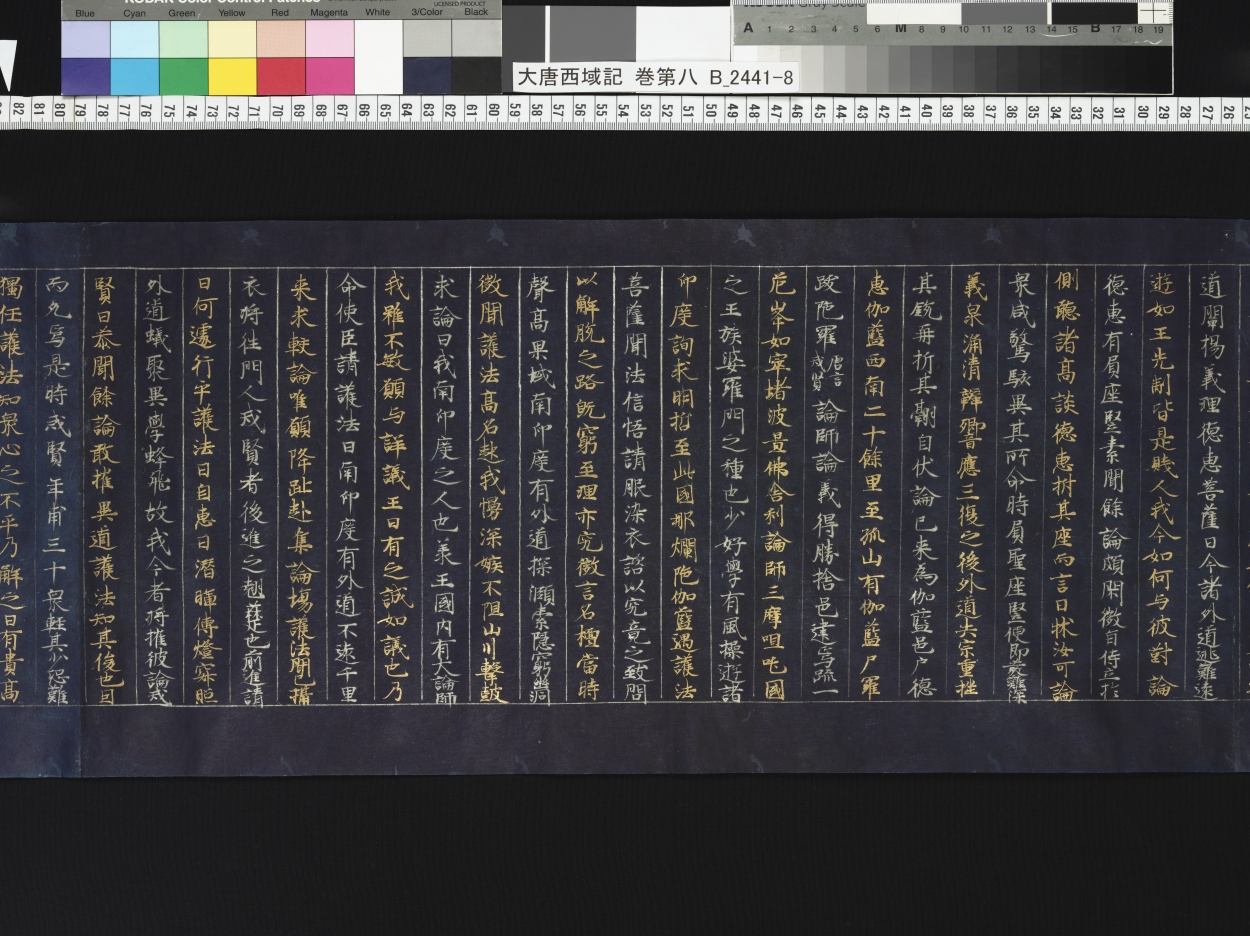 KODAK Color Control Patches
LICENSED PRODUCT
Blue Cyan Green Yellow Red Magenta White 3/Color Black
A 1 2 3 4 5 6 M 8 9 10 11 12 13 14 15 B 17 18 19
大唐西域記 巻第八 B_2441-8
82 81 80 79 78 77 76 75 74 73 72 71 70 69 68 67 66 65 64 63 62 61 60 59 58 57 56 55 54 53 52 51 50 49 48 47 46 45 44 43 42 41 40 39 38 37 36 35 34 33 32 31 30 29 28 27 26
道闡揚義理德惠菩薩曰今諸外道逃難遠
遊如王先制皆是賤人我今如何与彼對論
德惠有肩座竪素聞餘論頗閑微旨侍立於
側聽諸髙談德惠拊其座而言曰牀汝可論
衆咸驚駭異其所命時肩聖座竪便即發難深
義泉涌清辯響應三復之後外道失宗重挫
其銳再折其翮自伏論已来為伽藍邑户德
惠伽藍西南二十餘里至孤山有伽藍尸羅
跋陁羅唐言戒賢論師論義得勝捨邑建焉疏一
危峯如窣堵波置佛舎利論師三摩呾吒國
之王族婆羅門之種也少好學有風操遊諸
印度詢求明哲至此國那爛陁伽藍遇護法
菩薩聞法信悟請服染衣諮以究竟之致問
以解脫之路既窮至理亦究微言名擅當時
聲髙異域南印度有外道探賾索隱窮幽洞
微聞護法髙名起我慢深嫉不阻山川擊鼓
求論曰我南印度之人也羕王國内有大論師
我雖不敏願与詳議王曰有之誠如議也乃
命使臣請護法曰南印度有外道不遠千里
来求較論唯願降趾赴集論場護法聞已攝
衣将往門人戒賢者後進之翹蕤也前進請
曰何遽行乎護法曰自惠日潜暉傳燈寂照
外道蟻聚異學蜂飛故我今者将摧彼論戒
賢曰恭聞餘論敢摧異道護法知其俊也因
而允焉是時戒賢年甫三十衆輕其少恐難
獨任護法知衆心之不平乃解之曰有貴髙